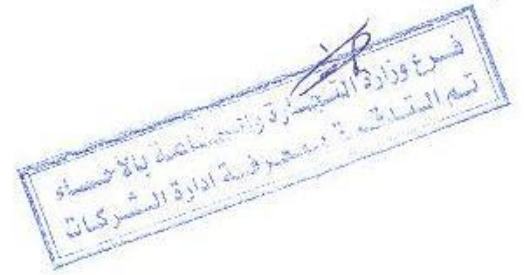 فرع وزارة التجارة والصناعة بالاحساء
تم التدقيق بمعرفة ادارة الشركات